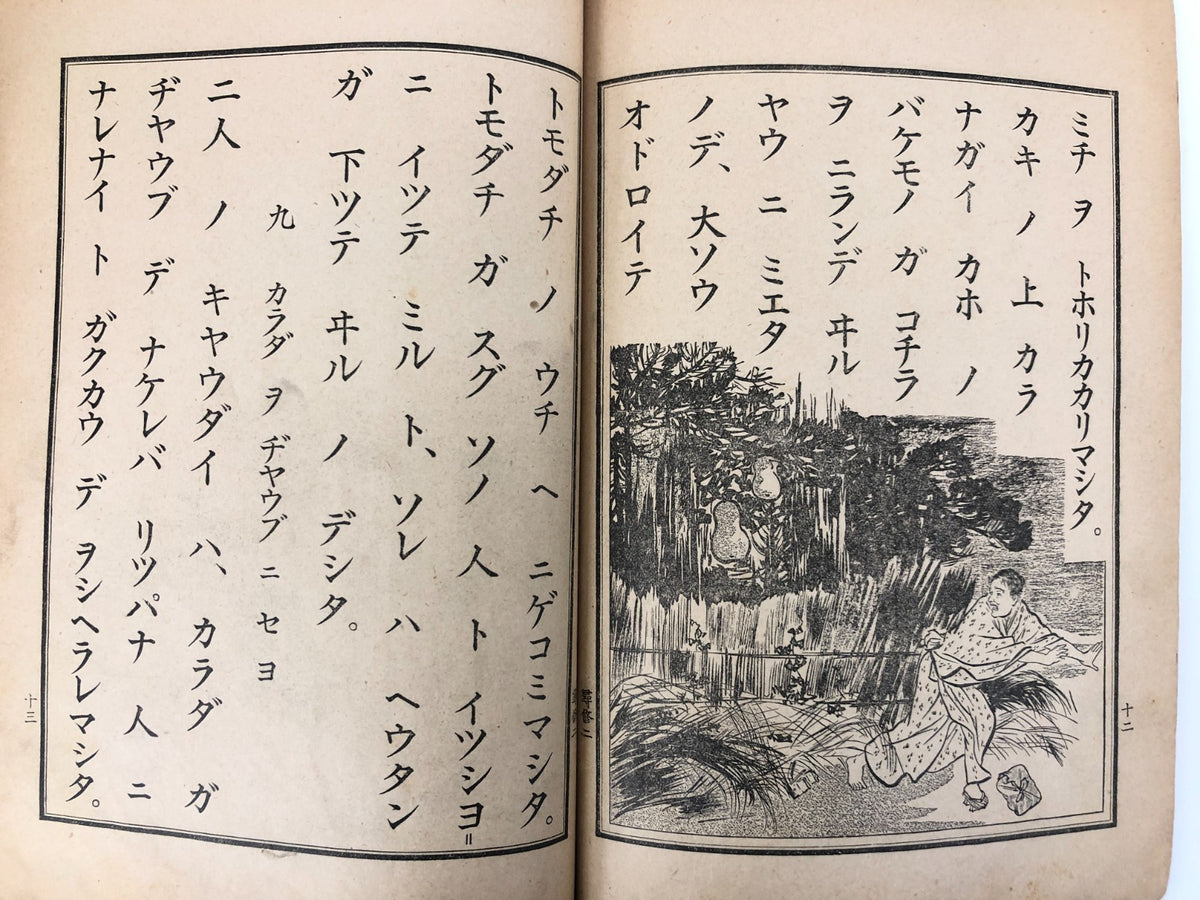 ミチ ヲ トホリカカリマシタ。
カキ ノ 上 カラ
ナガイ カホ ノ
バケモノ ガ コチラ
ヲ ニランデ ヰル
ヤウ ニ ミエタ
ノデ、大ソウ
オドロイテ
十二
尋修二
トモダチ ノ ウチ ヘ ニゲコミマシタ。
トモダチ ガ スグ ソノ 人 ト イツシヨ=
ニ イツテ ミル ト、ソレ ハ ヘウタン
ガ 下ツテ ヰル ノ デシタ。
九 カラダ ヲ ヂヤウブ ニ セヨ
二人 ノ キヤウダイ ハ、カラダ ガ
ヂヤウブ デ ナケレバ リツパナ 人 ニ
ナレナイ ト ガクカウ デ ヲシヘラレマシタ。
十三